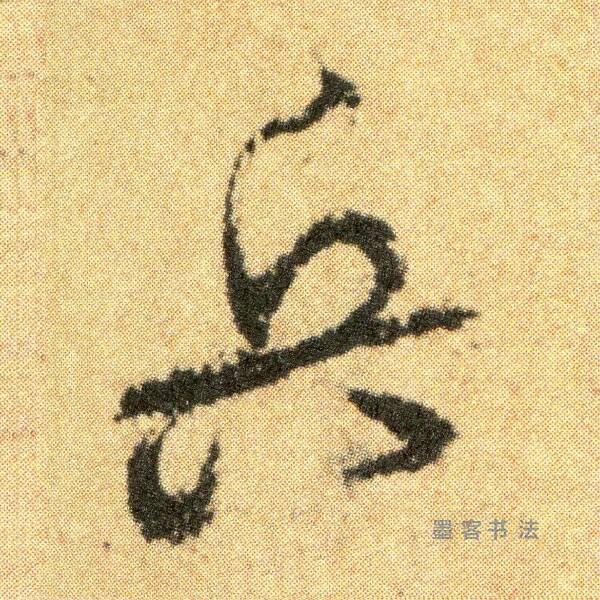 兵
墨客书法